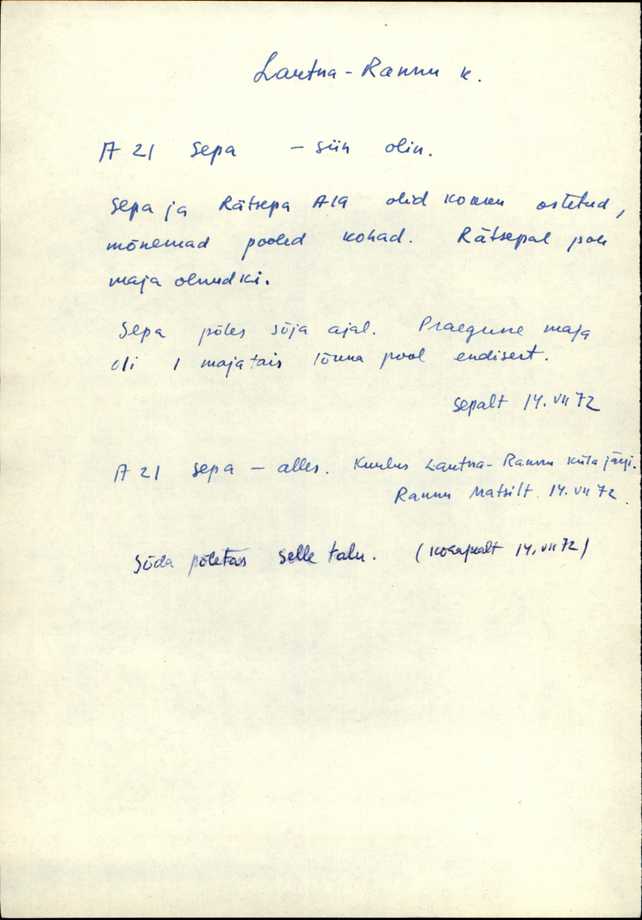 Lautna-Rannu k.
A 21 Sepa – siin olin.
Sepa ja Rätsepa A19 olid kokku ostetud,
mõnemad pooled kohad. Rätsepal pole
maja olnudki.
Sepa põles sõja ajal. Praegune maja
oli 1 majatäis lõuna pool endisest.
Sepalt 14. VII 72
A 21 Sepa – alles. Kuulus Lautna-Rannu küla järgi.
Rannu Matsilt. 14. VII 72
Sõda põletas selle talu. (kohapealt 14. VII 72)